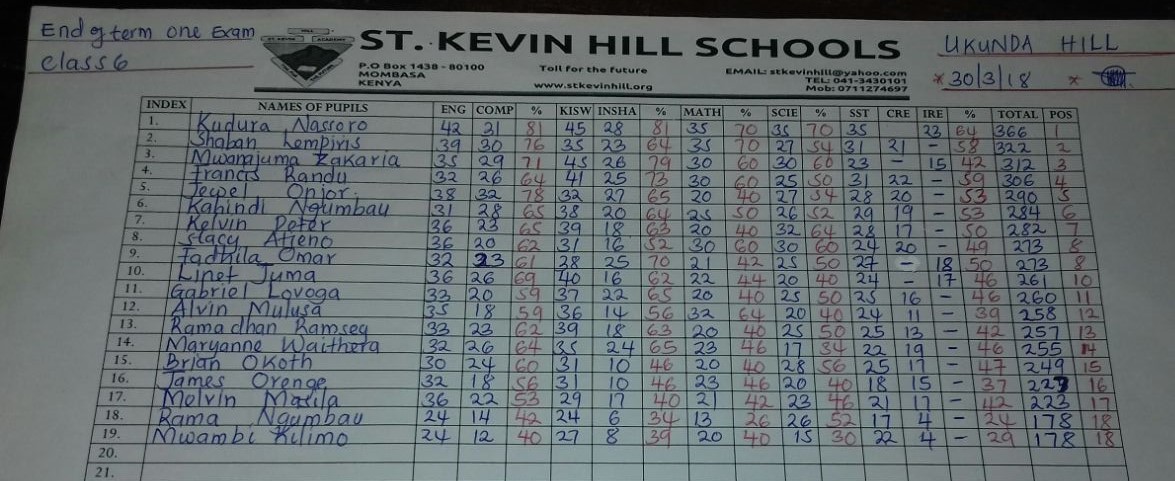 End of term one Exam
Class 6
ST. KEVIN HILL SCHOOLS
P.O Box 1438 - 80100
MOMBASA
KENYA
Toll for the future
www.stkevinhill.org
EMAIL: stkevinhill@yahoo.com
TEL: 041-3430101
Mob: 0711274697
UKUNDA HILL
* 30/3/18 *
INDEX NAMES OF PUPILS ENG COMP % KISW INSHA % MATH % SCIE % SST CRE IRE % TOTAL POS
1. Kudura Nassoro 42 31 81 45 28 81 35 70 35 70 35 23 64 366 1
2. Shaban Lempiris 39 30 76 35 23 64 35 70 27 54 31 21 - 58 322 2
3. Mwanajuma Zakaria 35 29 71 45 26 79 30 60 30 60 23 - 15 42 312 3
4. Francis Randu 32 26 64 41 25 73 30 60 25 50 31 22 - 59 306 4
5. Jewel Onjor 38 32 78 32 27 65 20 40 27 54 28 20 - 53 290 5
6. Kahindi Ngumbau 31 28 65 38 20 64 25 50 26 52 29 19 - 53 284 6
7. Kelvin Peter 36 23 65 39 18 63 20 40 32 64 28 17 - 50 282 7
8. Stacy Atieno 36 20 62 31 16 52 30 60 30 60 24 20 - 49 273 8
9. Fadhila Omar 32 23 61 28 25 70 21 42 25 50 27 - 18 50 273 8
10. Linet Juma 36 26 69 40 16 62 22 44 20 40 24 - 17 46 261 10
11. Gabriel Lovoga 33 20 59 37 22 65 20 40 25 50 25 16 - 46 260 11
12. Alvin Mulusa 35 18 59 36 14 56 32 64 20 40 24 11 - 39 258 12
13. Ramadhan Ramsey 33 23 62 39 18 63 20 40 25 50 25 13 - 42 257 13
14. Maryanne Waithera 32 26 64 35 24 65 23 46 17 34 22 19 - 46 255 14
15. Brian Okoth 30 24 60 31 10 46 20 40 28 56 25 17 - 47 249 15
16. James Orenge 32 18 56 31 10 46 23 46 20 40 18 15 - 37 16
17. Melvin Masila 36 22 53 29 17 40 21 42 23 46 21 17 - 42 223 17
18. Rama Ngumbau 24 14 42 24 6 34 13 26 26 52 17 4 - 24 178 18
19. Mwambi Kilimo 24 12 40 27 8 39 20 40 15 30 22 4 - 29 178 18
20.
21.